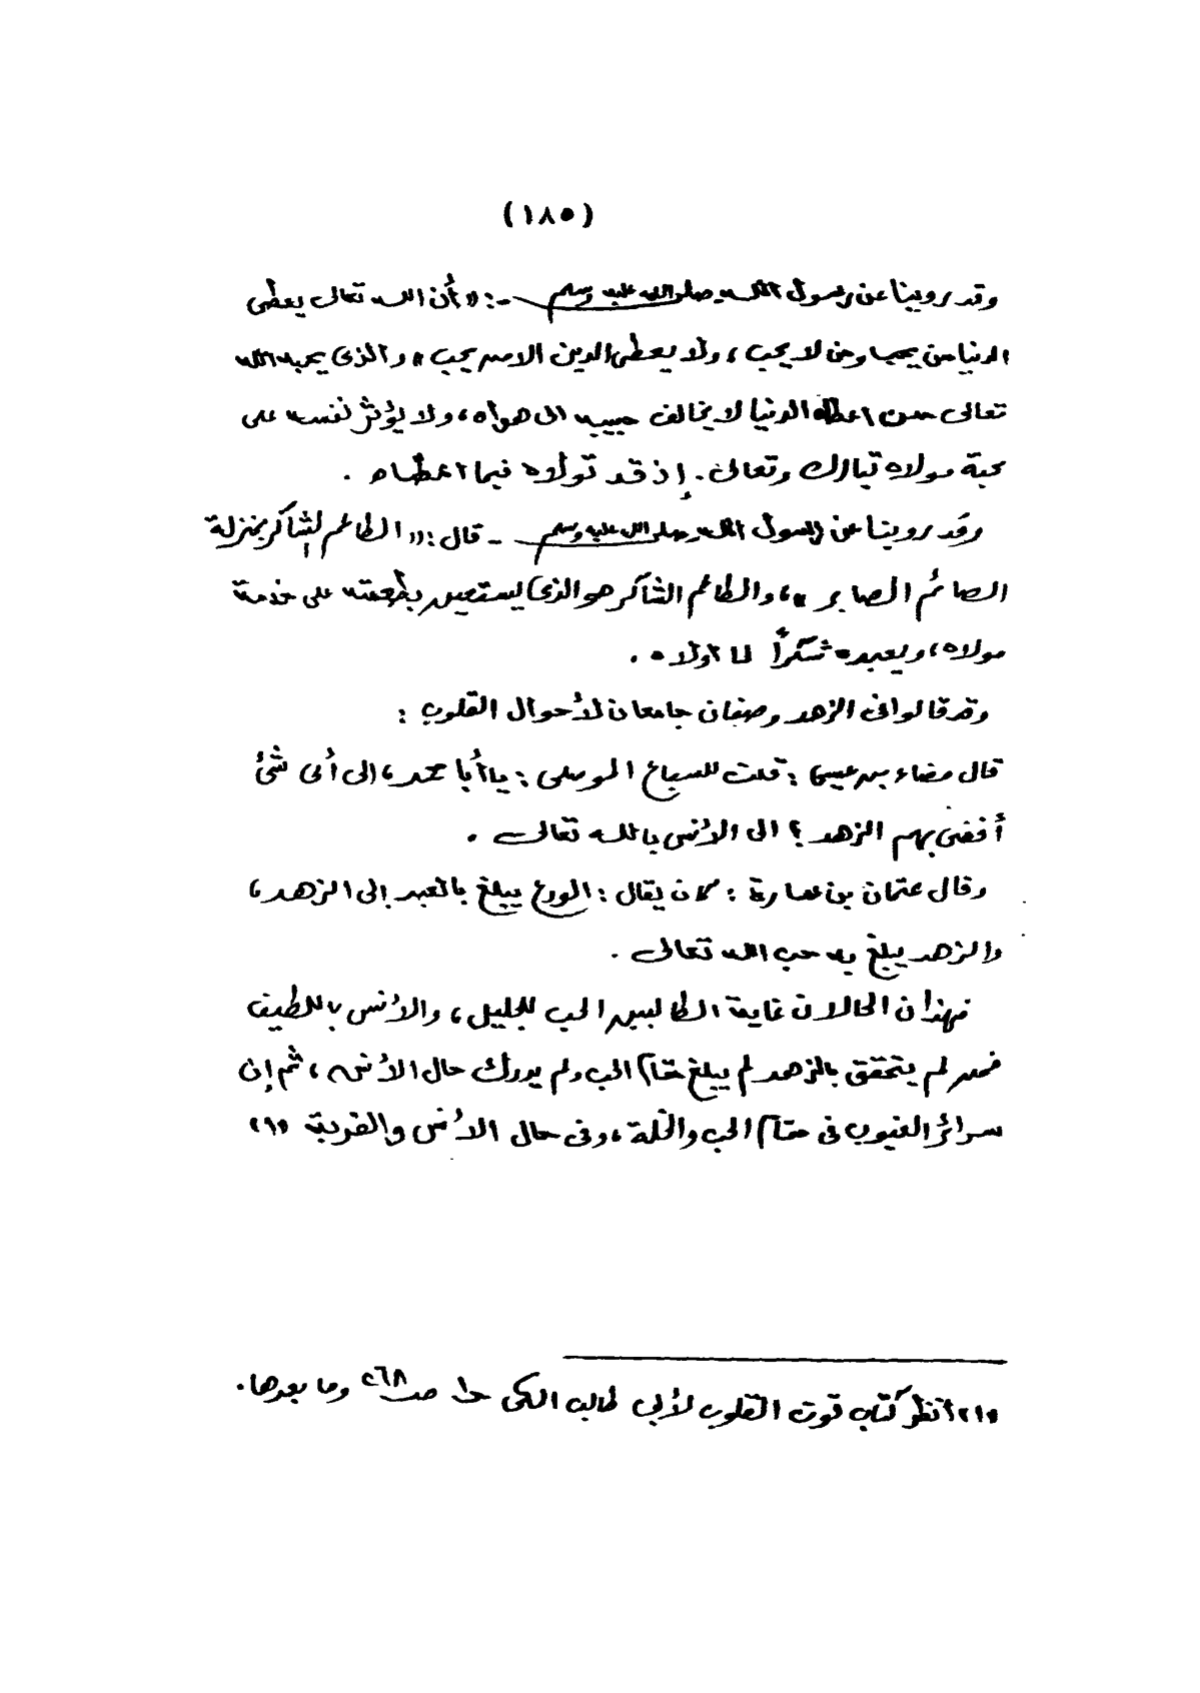 (١٨٥)
وقد روينا عن رسول الله صلى الله عليه وسلم -: « أن الله تعالى يعطى
الدنيا من يحب ومن لا يحب ، ولا يعطى الدين الا من يحب » والذى يحبه الله
تعالى ممن اعطاه الدنيا لا يخالف حبيبه الى هواه ، ولا يؤثر نفسه على
محبة مولاه تبارك وتعالى . إذ قد تولاه فيما اعطاه .
وقد روينا عن رسول الله صلى الله عليه وسلم - قال : « الطاعم الشاكر بمنزلة
الصائم الصابر » ، والطاعم الشاكر هو الذى يستعين بطعمته على خدمة
مولاه ، ويعبده شكراً لما اولاه .
وقد قالوا فى الزهد وصفان جامعان لأحوال القلوب :
قال مضاء بن عيسى : قلت للسباع الموصلى : يا أبا محمد ، إلى أى شئ
أفضى بهم الزهد ؟ الى الأنس بالله تعالى .
وقال عثمان بن عمارة : كان يقال : الورع يبلغ بالعبد إلى الزهد ،
والزهد يبلغ به حب الله تعالى .
فهذان الحالان غاية الطالبين الحب للجليل ، والأنس باللطيف
فمن لم يتحقق بالزهد لم يبلغ مقام الحب ولم يدرك حال الأنس ، ثم إن
سرائر الغيوب فى مقام الحب والخلة ، وفى حال الأنس والقربة «١»
«١» أنظر كتاب قوت القلوب لأبى طالب المكى حـ١ صـ٢٦٨ وما بعدها .